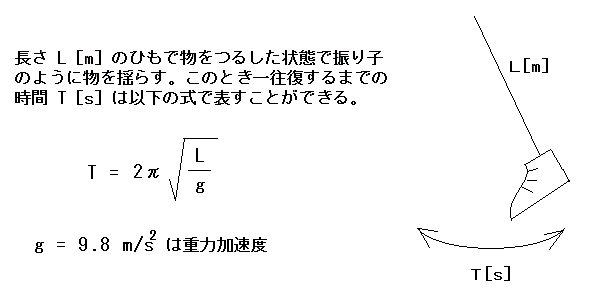 長さ L [m] のひもで物をつるした状態で振り子
のように物を揺らす。このとき一往復するまでの
時間 T [s] は以下の式で表すことができる。
T = 2π √(L/g)
g = 9.8 m/s² は重力加速度
L[m]
T[s]